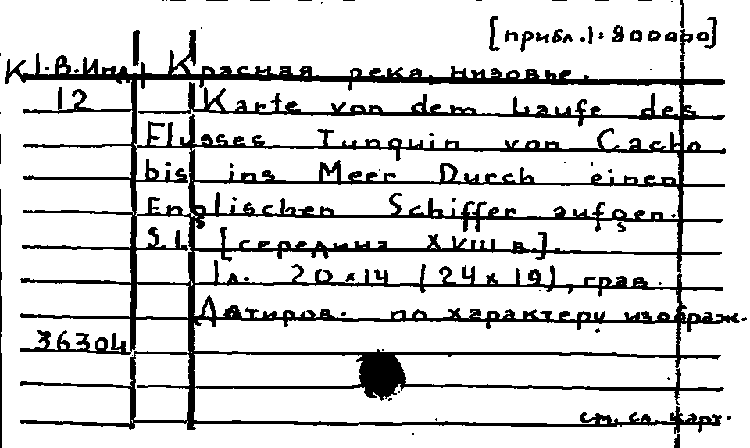 [прибл. 1:800000]
К 1-В.Инд. Красная река, низовье.
12 Karte von dem Laufe des
Flusses Tunquin von Cacho
bis ins Meer Durch einen
Englischen Schiffer aufgen.
S.l. [середина XVIII в.].
1л. 20×14 (24×19), грав.
Датиров. по характеру изображ.
36304
см. сл. карт.